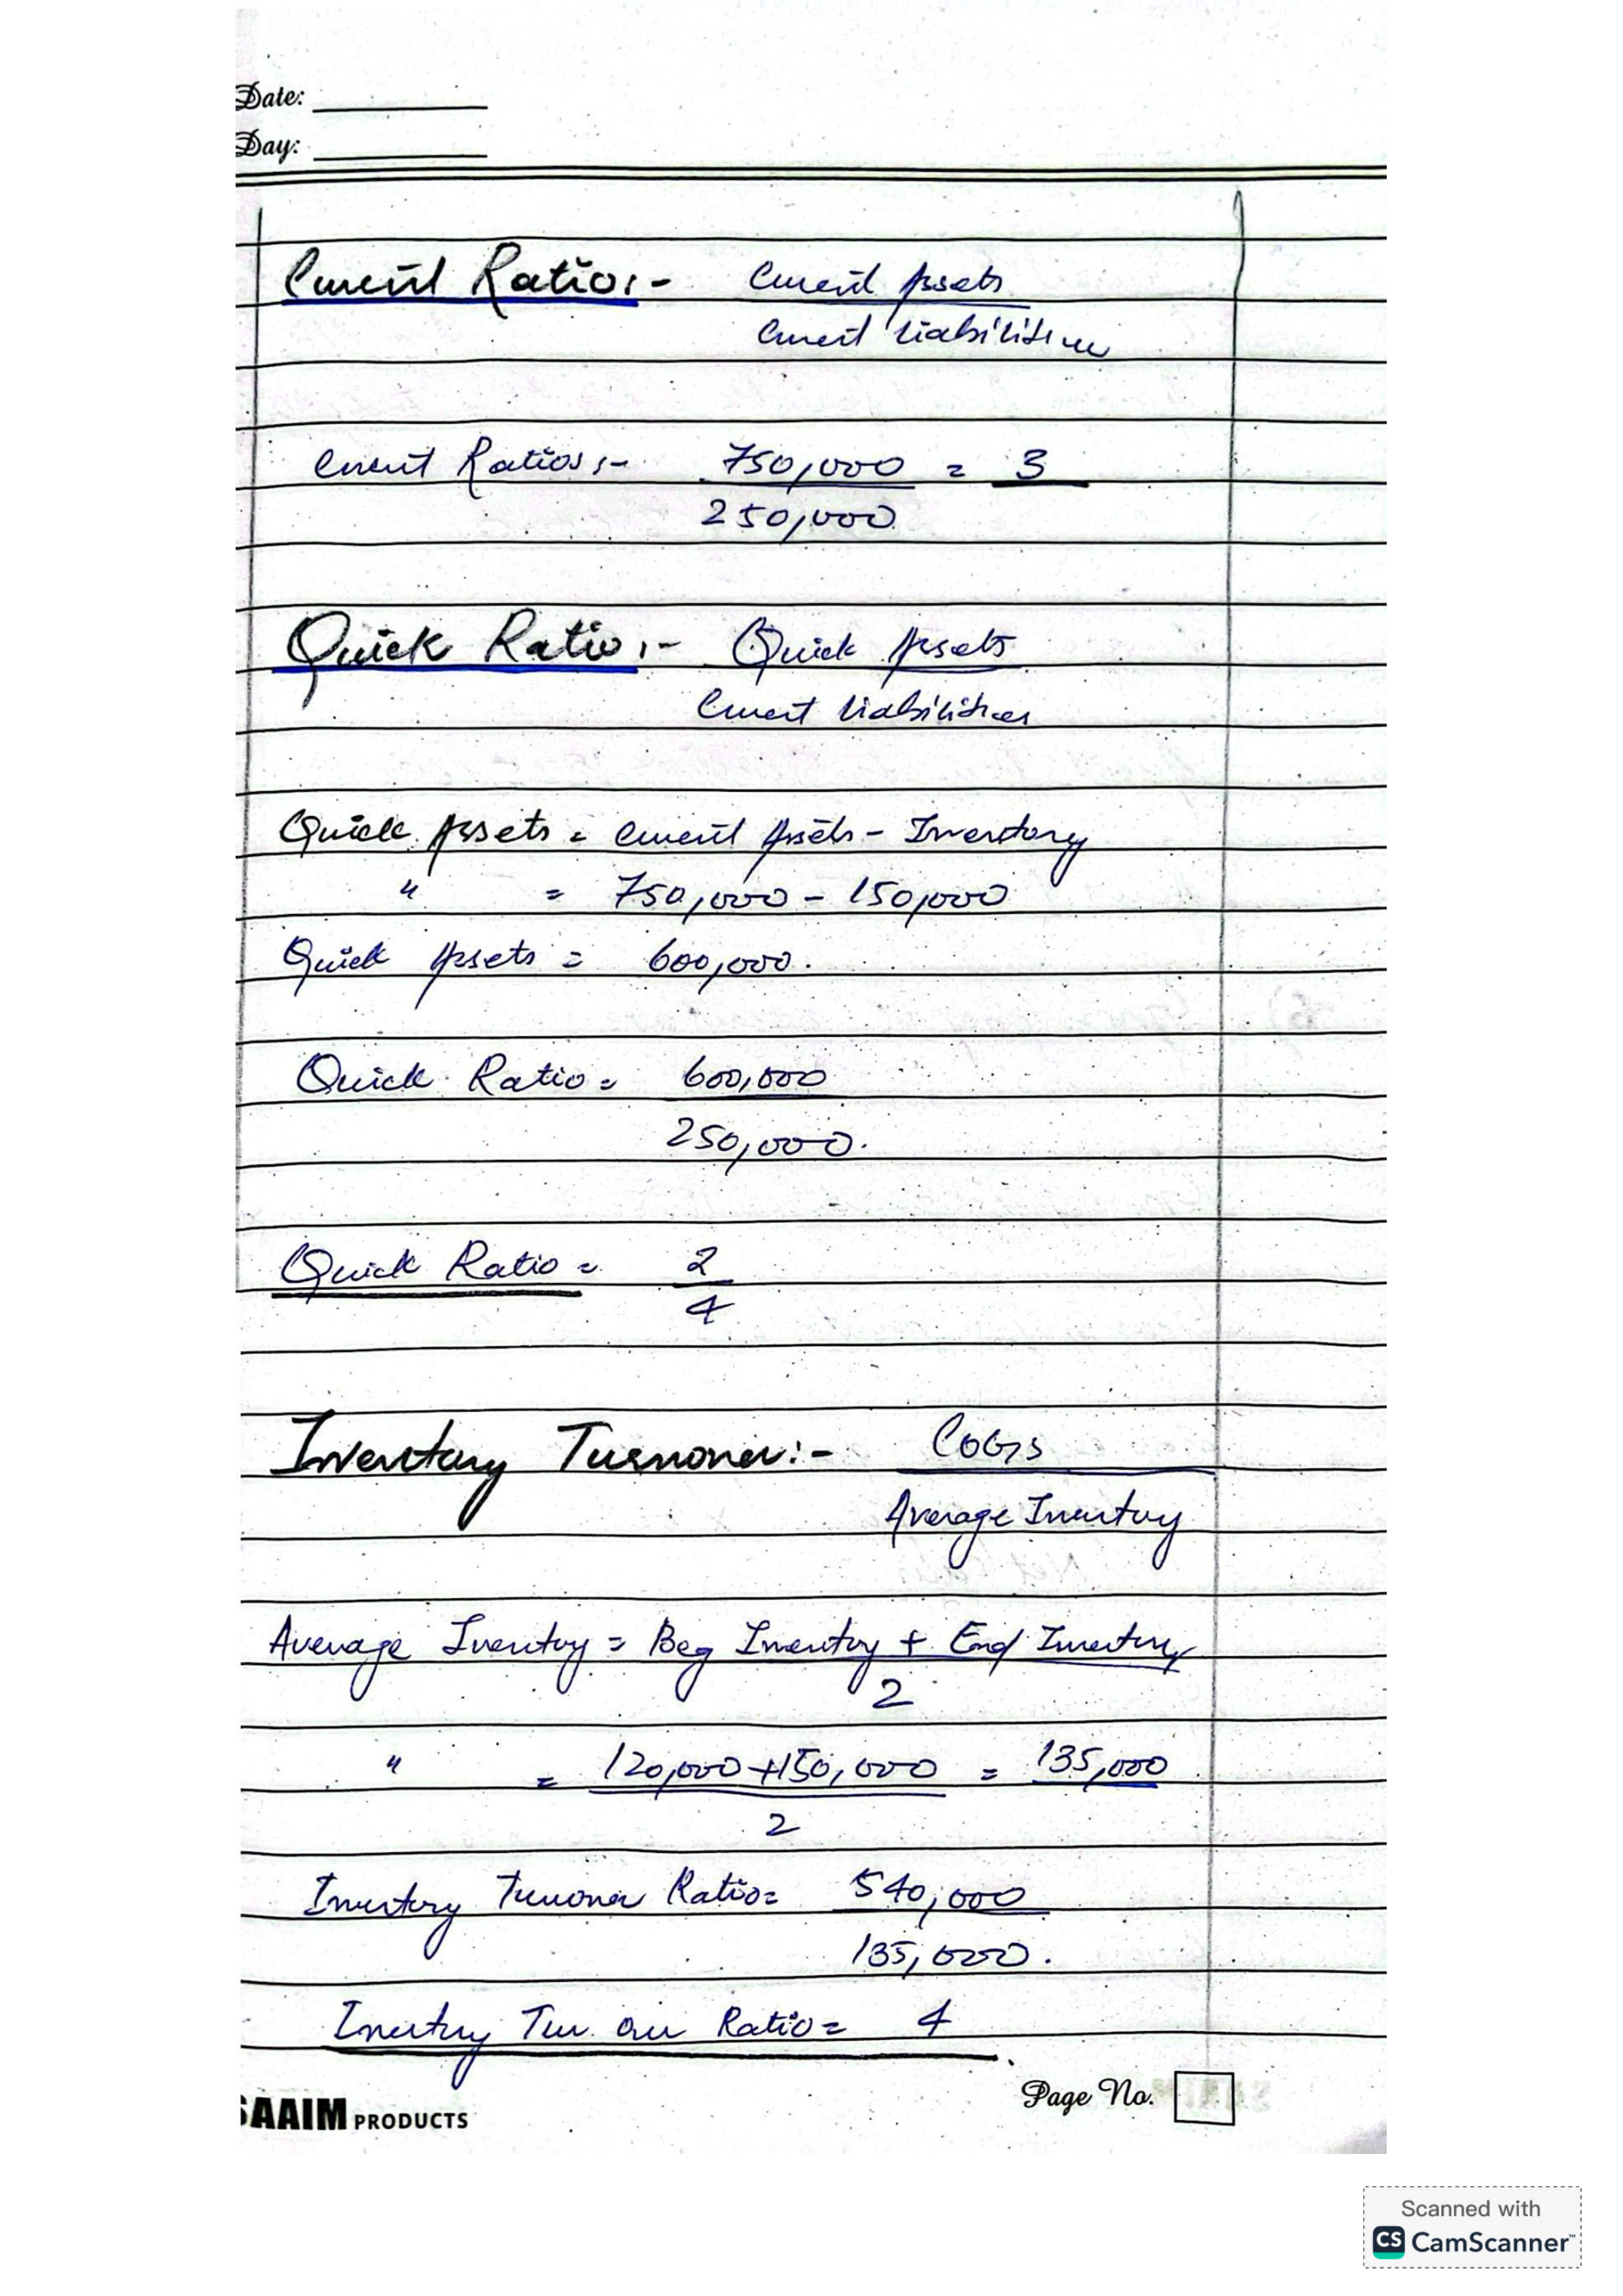 Date:
Day:
Current Ratio:- Current Assets
Current Liabilities
Current Ratios:- 750,000 = 3
250,000
Quick Ratio:- Quick Assets
Current Liabilities
Quick Assets = Current Assets - Inventory
" = 750,000 - 150,000
Quick Assets = 600,000.
Quick Ratio = 600,000
250,000.
Quick Ratio = 2
4
Inventory Turnover:- COGS
Average Inventory
Average Inventory = Beg Inventory + End Inventory
2
" = 120,000 + 150,000 = 135,000
2
Inventory Turnover Ratio = 540,000
135,000.
Inventory Turn over Ratio = 4
Page No.
SAAIM PRODUCTS
Scanned with
CS CamScanner™